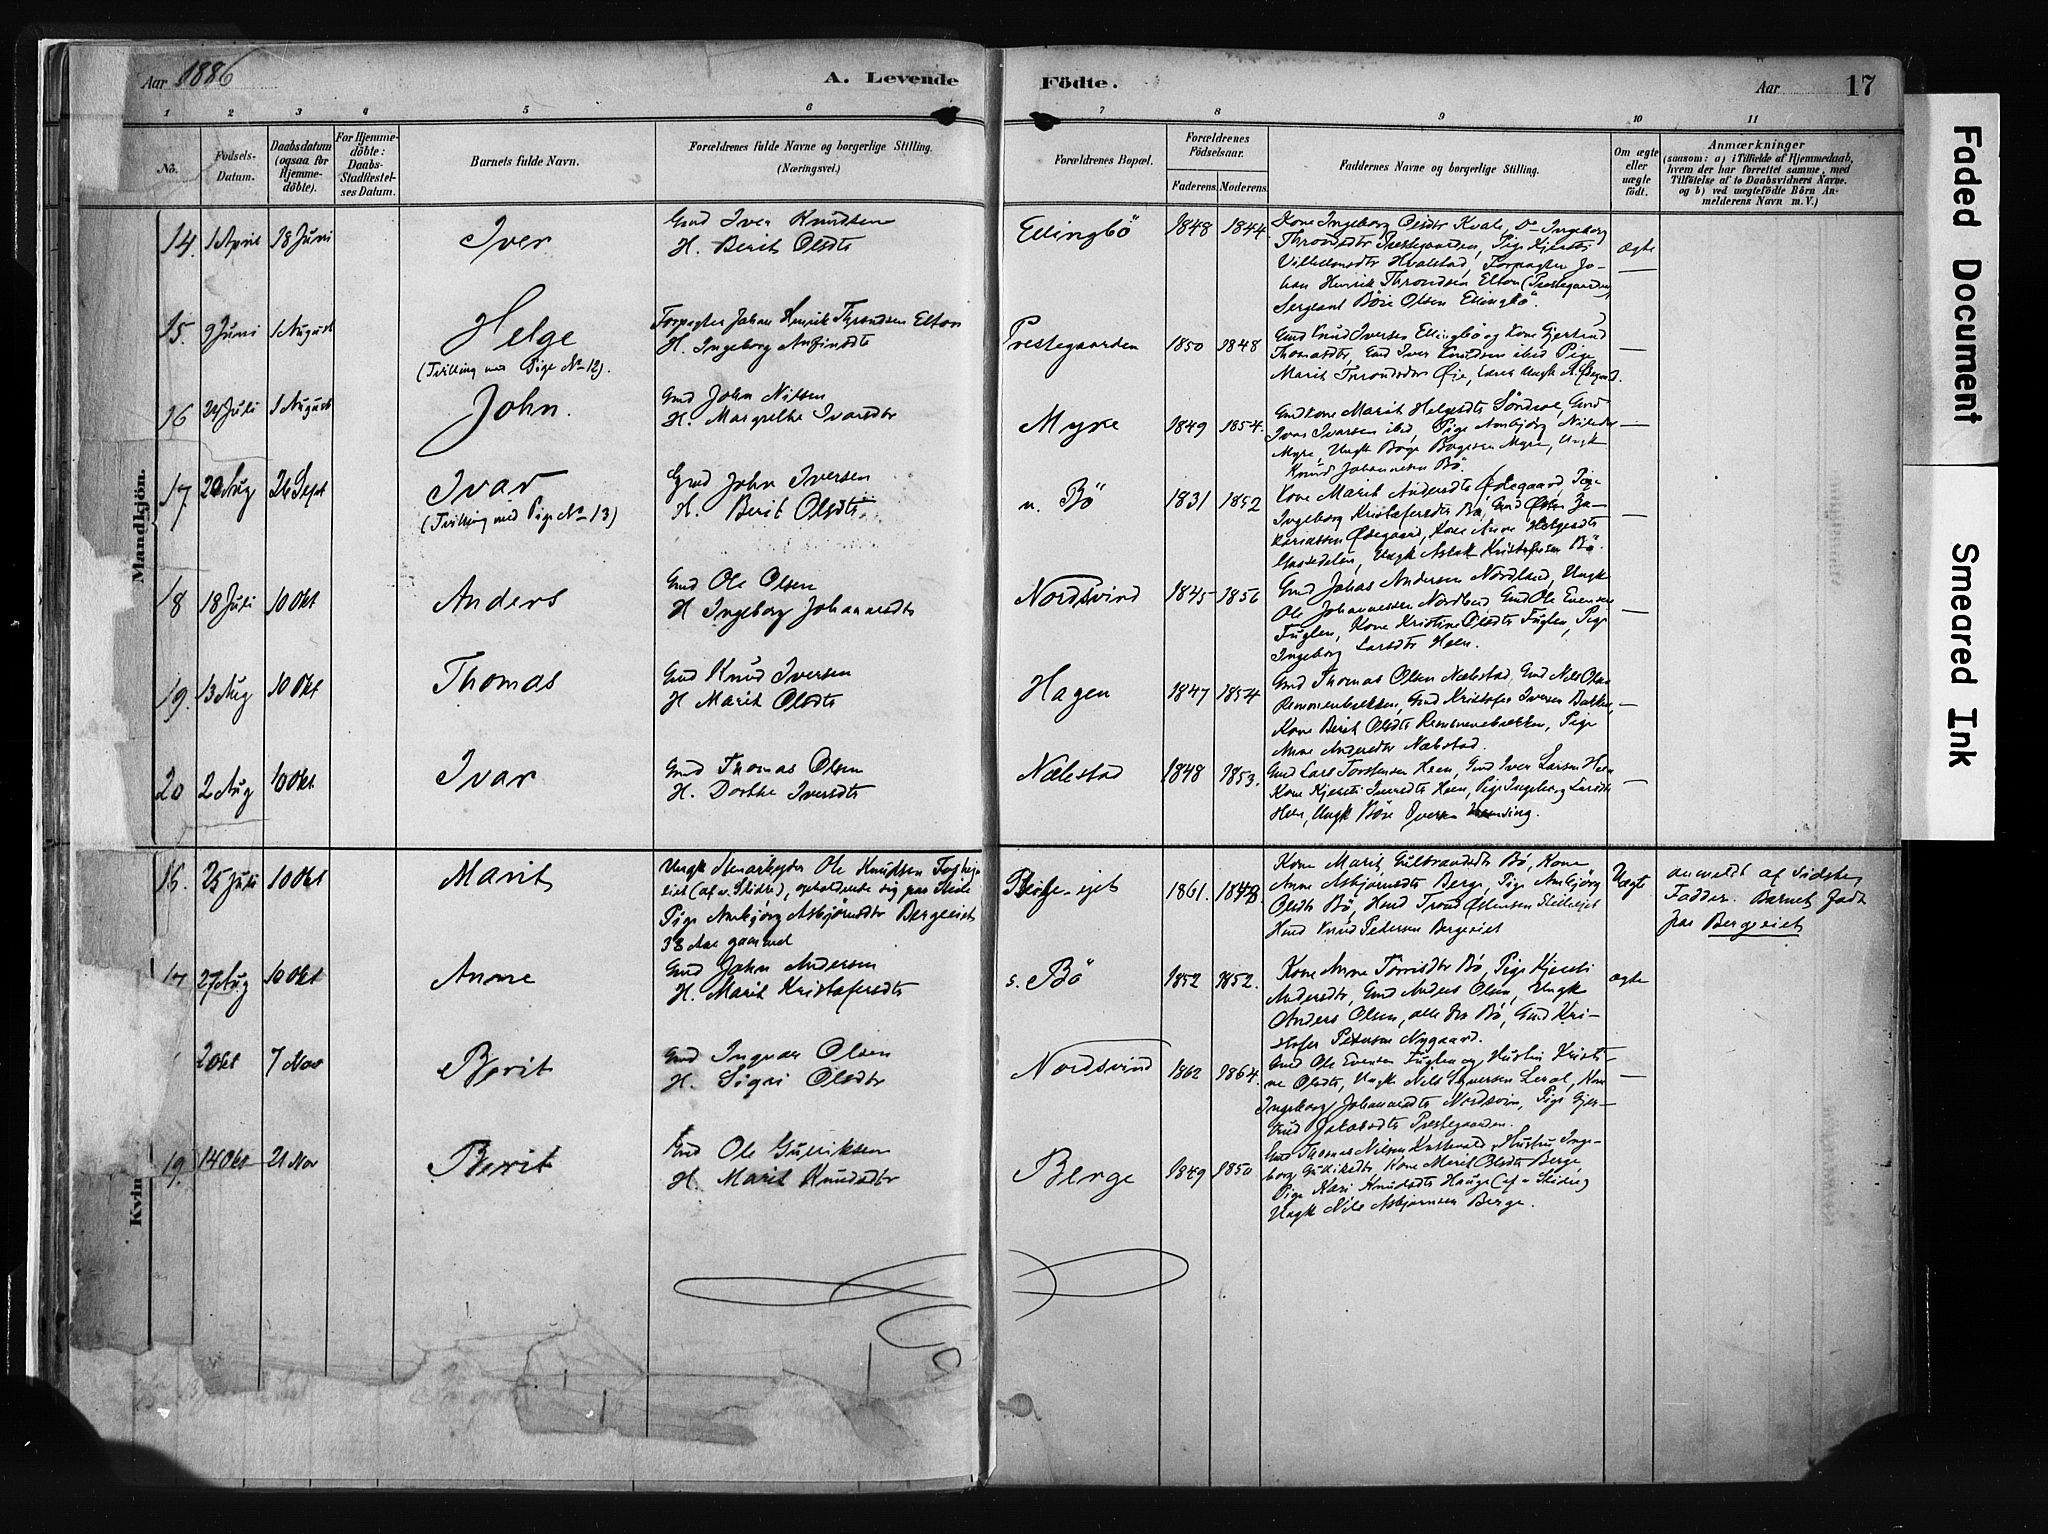 Aar 1886
A. Levende
Födte.
Aar
17
1 2 3 4 5 6 7 8 9 10 11
No.
Födsels-
Datum.
Daabsdatum
(ogsaa for
Hjemme-
döbte).
For Hjemme-
döbte:
Daabs-
Stadfestel-
ses Datum.
Barnets fulde Navn.
Forældrenes fulde Navne og borgerlige Stilling.
(Næringsvei.)
Forældrenes Bopæl.
Forældrenes
Födselsaar.
Faderens. Moderens.
Faddernes Navne og borgerlige Stilling.
Om ægte
eller
uægte
födt.
Anmærkninger
(saasom: a) i Tilfælde af Hjemmedaab,
hvem der har forrettet samme, med
Tilföielse af to Daabsvidners Navne.
og b) ved uægtefödte Börn An-
melderens Navn m. V.)
Mandkjön.
14. 1 April 18 Juni
Iver
Gmd Iver Knudsen
H. Berit Olsdtr
Ellingbö
1848 1844
Kone Ingeborg Olsdtr Kvale, Do Ingeborg
Throndsdtr Prestegaarden, Pige Kjersti
Hvalstad, Forpagter Jo-
han Henrik Throndsen Elton (Prestegaarden)
Sergeant Böie Olsen Ellingbö.
ægte
15. 9 Juni 1 August
Helge
(Tvilling med Pige No 12).
Forpagter Johan Henrik Throndsen Elton
H. Ingeborg Anfinsdtr
Prestegaarden
1850 1848
Gmd Knud Iversen Ellingbö og Kone Gjertrud
Thomasdtr, Gmd Iver Knudsen ibid Pige
Marit Throndsdtr Øie,
16 24 Juli 1 August
John.
Gmd John Nilsen
H. Margrethe Ivarsdtr
Myre
1849 1854.
Gmdkone Marit Helgesdtr Söndrol, Gmd
Ivar Ivarsen ibid, Pige Ambjörg Nilsdtr
Myre, Ungk Böye Bogesen Myre, Ungk
Knud Johannesen Bö.
17. 20 Aug 26 Sept
Ivar
(Tvilling med Pige No 13)
Gmd John Iversen
H. Berit Olsdtr
n. Bö
1831 1852
Kone Marit Andersdtr Ødegaard, Pige
Ingeborg Kristofersdtr Bö, Gmd Østen Za-
kariassen Ødegaard, Kone Anne Helgesdtr
Ungk Aslak Kristofersen Bö.
18 18 Juli 10 Okt
Anders
Gmd Ole Olsen
H Ingeborg Johannesdtr
Nordsvind
1845 1856
Gmd Johas Andersen Nordland, Ungk
Ole Johannessen Nordlund, Gmd Ole Evensen
Fuglen, Kone Kristine Olsdtr Fuglen, Pige
Ingeborg Larsdtr Heen.
19. 13 Aug 10 Okt
Thomas
Gmd Knud Iversen
H Marit Olsdtr
Hagen
1847 1854
Gmd Thomas Olsen Næbestad, Gmd Nils Olsen
Remmenbækken, Gmd Kristofer Iversen Bakken,
Kone Berit Olsdtr Remmenebækken, Pige
Anne Andersdtr Næbstad.
20 2 Aug 10 Okt
Ivar
Gmd Thomas Olsen
H. Dorthe Iversdtr
Næbestad
1848 1853.
Gmd Lars Torstensen Heen, Gmd Iver Larsen Heen
Kone Kjersti Iversdtr Heen, Pige Ingeborg Larsdtr
Heen, Ungk Böie
Kvin
16. 25 Juli 10 Okt
Marit
Ungk Stenarbeider Ole Knudsen
eiet (af v. Slidre), opholdende sig paa Stede
Pige Ambjörg Asbjörnsdtr Bergeeiet
38 Aar gammel
Berge-ejet
1861. 1848.
Kone Marit Gulbrandsdtr Bö, Kone
Anne Asbjörnsdtr Berge, Pige Ambjörg
Olsdtr Bö, Hmd Trond Østensen
Hmd Knud Pedersen Bergeeiet
Uægte
anmeldt af Sidste
Fadder. Barnet födt
paa Bergeeiet
17 27 Aug 10 Okt
Anne
Gmd John Andersen
H. Marit Kristofersdtr
s. Bö
1852 1852.
Kone Anne Torrisdtr Bö, Pige Kjersti
Andersdtr, Gmd Anders Olsen, Ungk
Anders Olsen, alle fra Bö, Gmd Kri-
stofer Petersen Nygaard.
ægte
2 Okt 7 Nov
Berit
Gmd Ingvar Olsen
H. Sigri Olsdtr
Nordsvind
1862 1864.
Gmd Ole Evensen Fuglen og Hustru Kristi-
ne Olsdtr, Ungk Nils Syversen Lerol, Kone
Ingeborg Johannesdtr Nordsvin, Pige Gjer-
trud Jakobsdtr Prestegaarden.
19. 14 Okt 21 Nov
Berit
Gmd Ole Gulliksen
H. Marit Knudsdtr
Berge
1849 1850
Gmd Thomas Nilsen Hustru Inge-
borg Gulliksdtr, Kone Marit Olsdtr Berge,
Pige Kari Knudsdtr Hauge (af v Slidre)
Ungk Nils Asbjörnsen Berge.
Faded Document
Smeared Ink